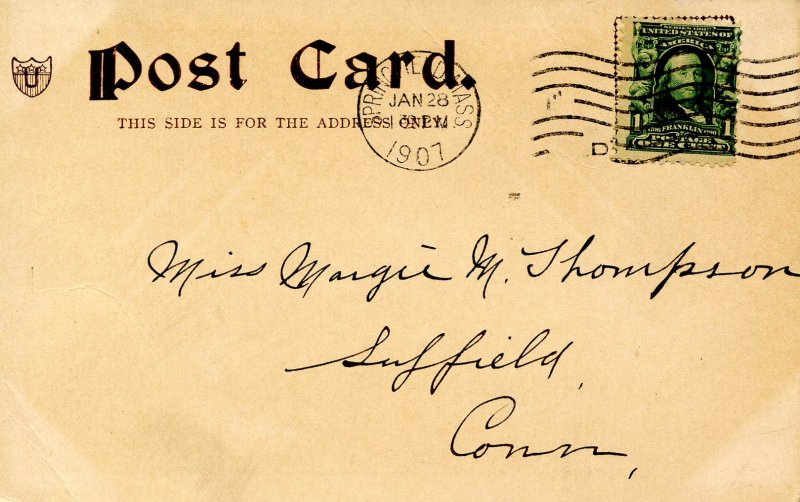 U
Post Card.
THIS SIDE IS FOR THE ADDRESS ONLY.
SPRINGFIELD, MASS.
JAN 28
1907
D
SERIES 1902
UNITED STATES OF
AMERICA
FRANKLIN
1 1
POSTAGE
ONE CENT
Miss Margie M. Thompson
Suffield,
Conn,